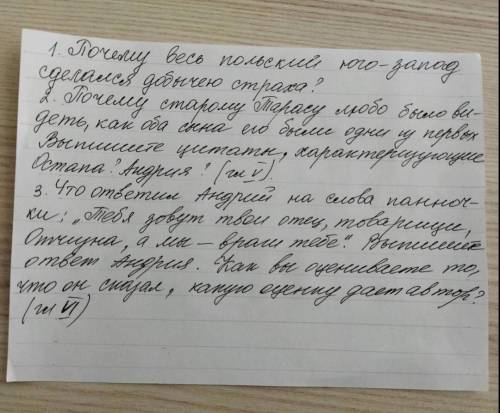 1. Почему весь польский юго-запад
сделался добычею страха?
2. Почему старому Тарасу любо было ви-
деть, как оба сына его были одни из первых
Выпишите цитаты, характеризующие
Остапа? Андрия? (гл V).
3. Что ответил Андрий на слова панноч-
ки: „Тебя зовут твои отец, товарищи,
отчизна, а мы – враги тебе". Выпишите
ответ Андрия. Как вы оцениваете то,
что он сказал, какую оценку дает автор?
(гл VI)